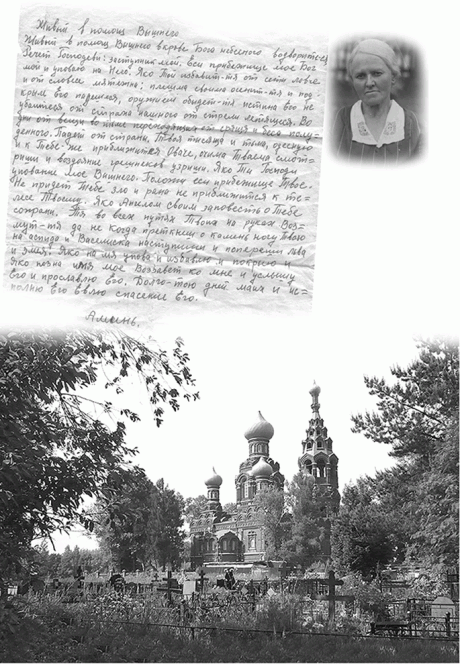 Живый в помощ Вышнего
Живый в помощ Вышнего в крове Бога небесного водворится
Речет Господеви: заступник мой. Еси прибежище мое Бог
мой и уповаю на Него. Яко Той избавит-тя от сети ловчи
и от словес мятежна; плещма своима осенит-тя и под
крыле его надеешся, оружием обидет-тя истина его не
убоишся от страха нашного от стрели летящия. Во
дни от вещи во тьме переходящия от сряща и беса полу-
денного. Падет от страни, Твоя тисяща и тма, одесную
и к Тебе же приближится. Обаче, очима Твоима смот-
риши и воздаяние грешников узриши. Яко Ти Господи
упование мое Вышнего. Положи еси прибежище Твое.
Не придет Тебе зло и рана не приближится к те-
лесе Твоему. Яко Ангелом своим заповесть о Тебе
сохрани. Тя во всех путях Твоих на руках Воз-
мут-тя да не когда преткнеши о камень ногу Твою
на аспида и Василиска наступиши и попереши лва
и змия; Яко на мя упова и избавлю и покрыю и
Яко позна имя мое Воззовет ко мне и услышу
Его и прославлю его. Долго-тою дней и ис-
полню Его Евлю спасение Его.
Аминь.